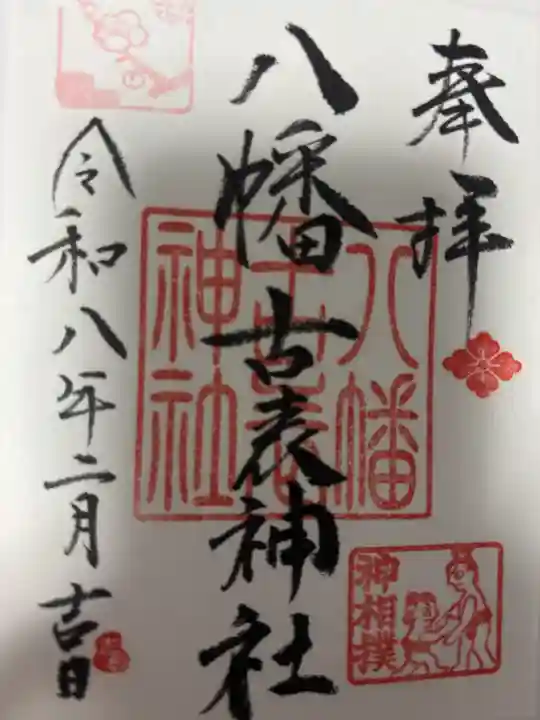 奉拝
八幡古表神社
八幡古表神社
神相撲
令和八年二月吉日